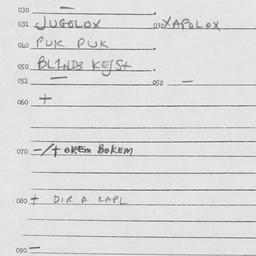 030 —
031 JUGOLOX 032 XAPOLOX
040 PUK PUK
050 BLINDS KEJSt
051 — 052 —
060 +
070 -/+ OKEM BOKEM
080 + DIR A LAPL
090 —